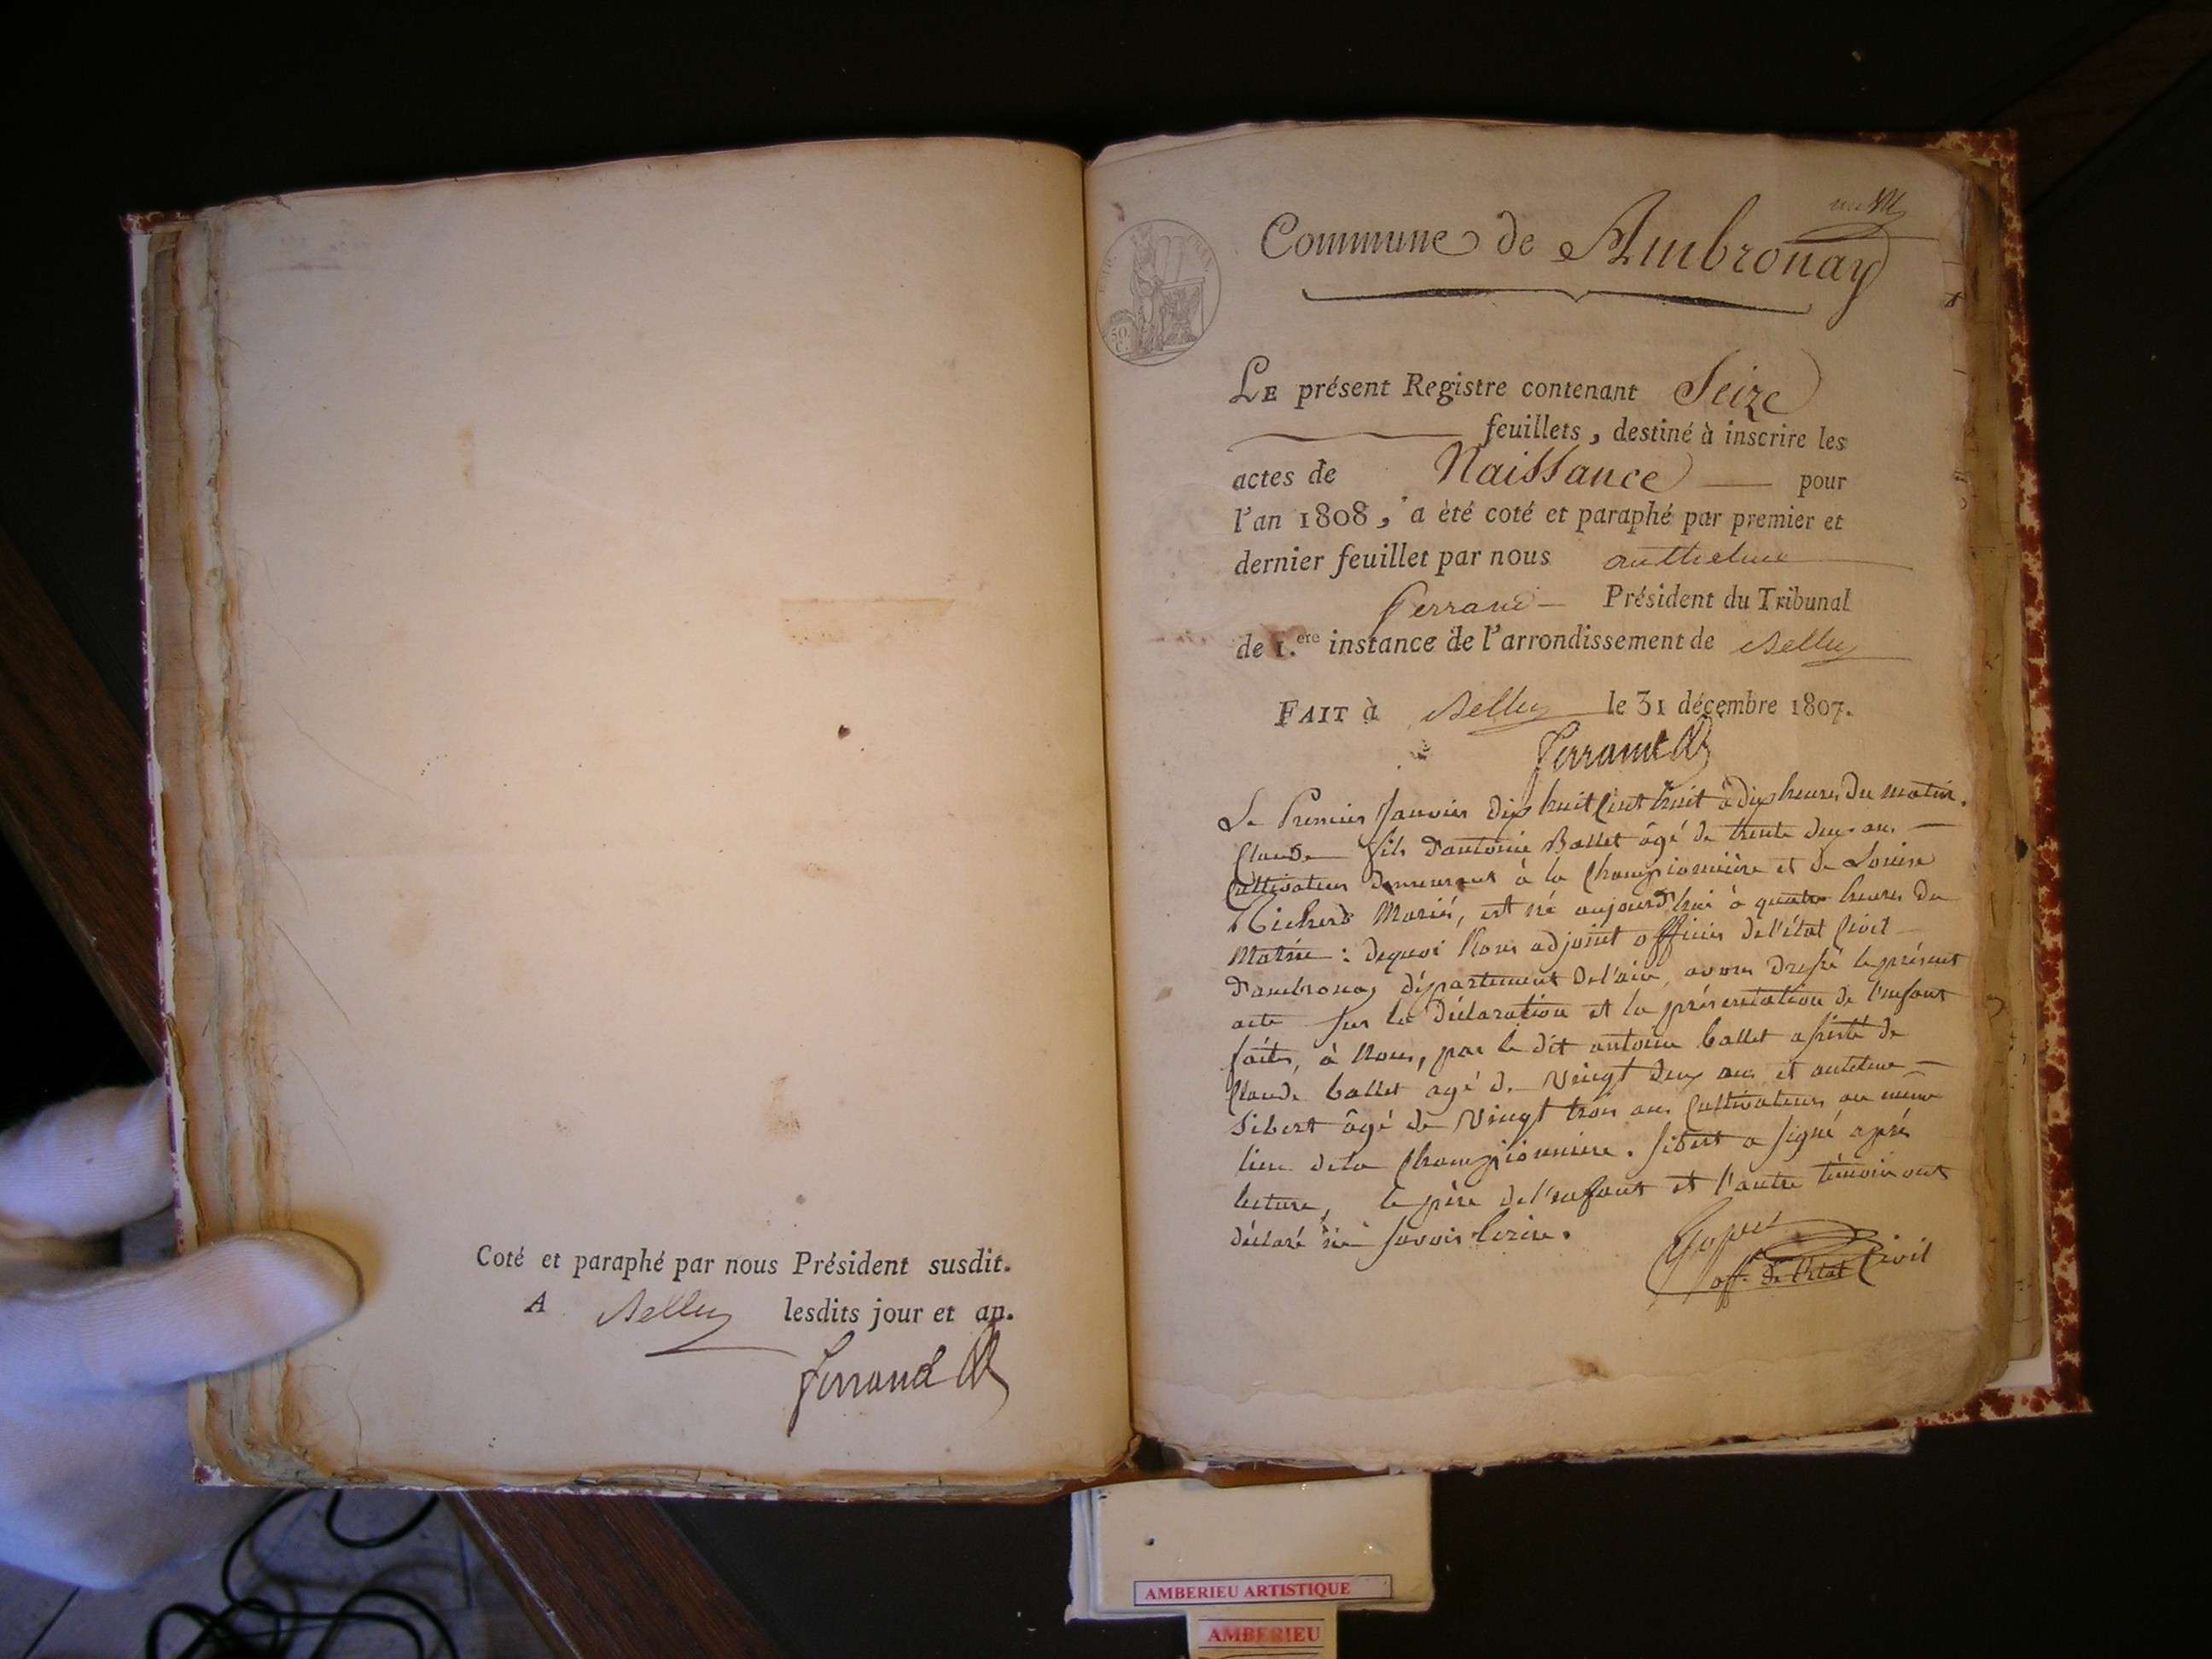 Coté et paraphé par nous Président susdit.
A Belley lesdits jour et an.
Ferrand
Commune de Ambronay
50
C.
LE présent Registre contenant Seize
feuillets, destiné à inscrire les
actes de Naissance pour
l'an 1808, a èté coté et paraphé par premier et
dernier feuillet par nous anthelme
Ferrand Président du Tribunal
de 1.ere instance de l'arrondissement de Belley
FAIT à Belley le 31 décembre 1807.
Ferrand
Le Premier Janvier dix huit Cent huit à dix heures Du matin.
Claude fils d'antoine Ballet âgé de trente deux ans
Cultivateur Demeurant à la Championnière et de Louise
Richerd Mariés, est né aujourd'hui à quatre heures Du
Matin : dequoi Nous adjoint officier de l'état Civil
d'ambronay département de l'ain, avons dressé le présent
acte sur la Déclaration et la présentation de l'enfant
faites, à Nous, par le dit antoine ballet assisté de
Claude ballet agé de Vingt deux ans et antelme
Sibert âgé de Vingt trois ans Cultivateurs au même
lieu de la Championniere. Sibert a signé après
lecture, le père de l'enfant et l'autre témoin ont
déclaré ne savoir Ecrire.
off. de l'Etat Civil
AMBERIEU ARTISTIQUE
AMBERIEU